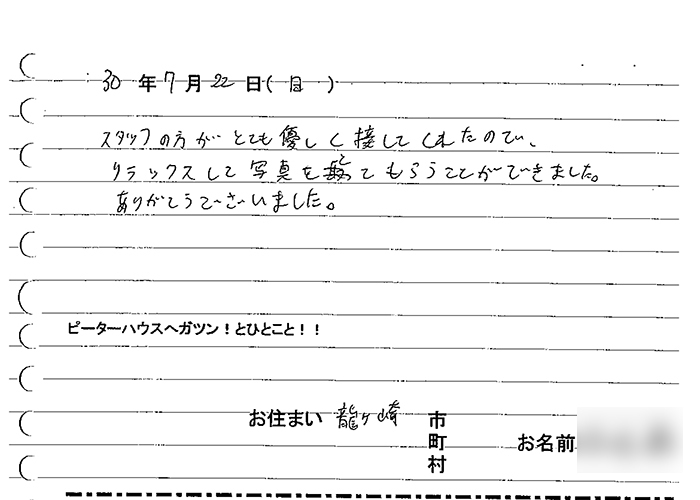 30年7月22日(日)
スタッフの方がとても優しく接してくれたので、
リラックスして写真をとってもらうことができました。
ありがとうございました。
ピーターハウスへガツン!とひとこと!!
お住まい 龍ヶ崎 市
町
村
お名前